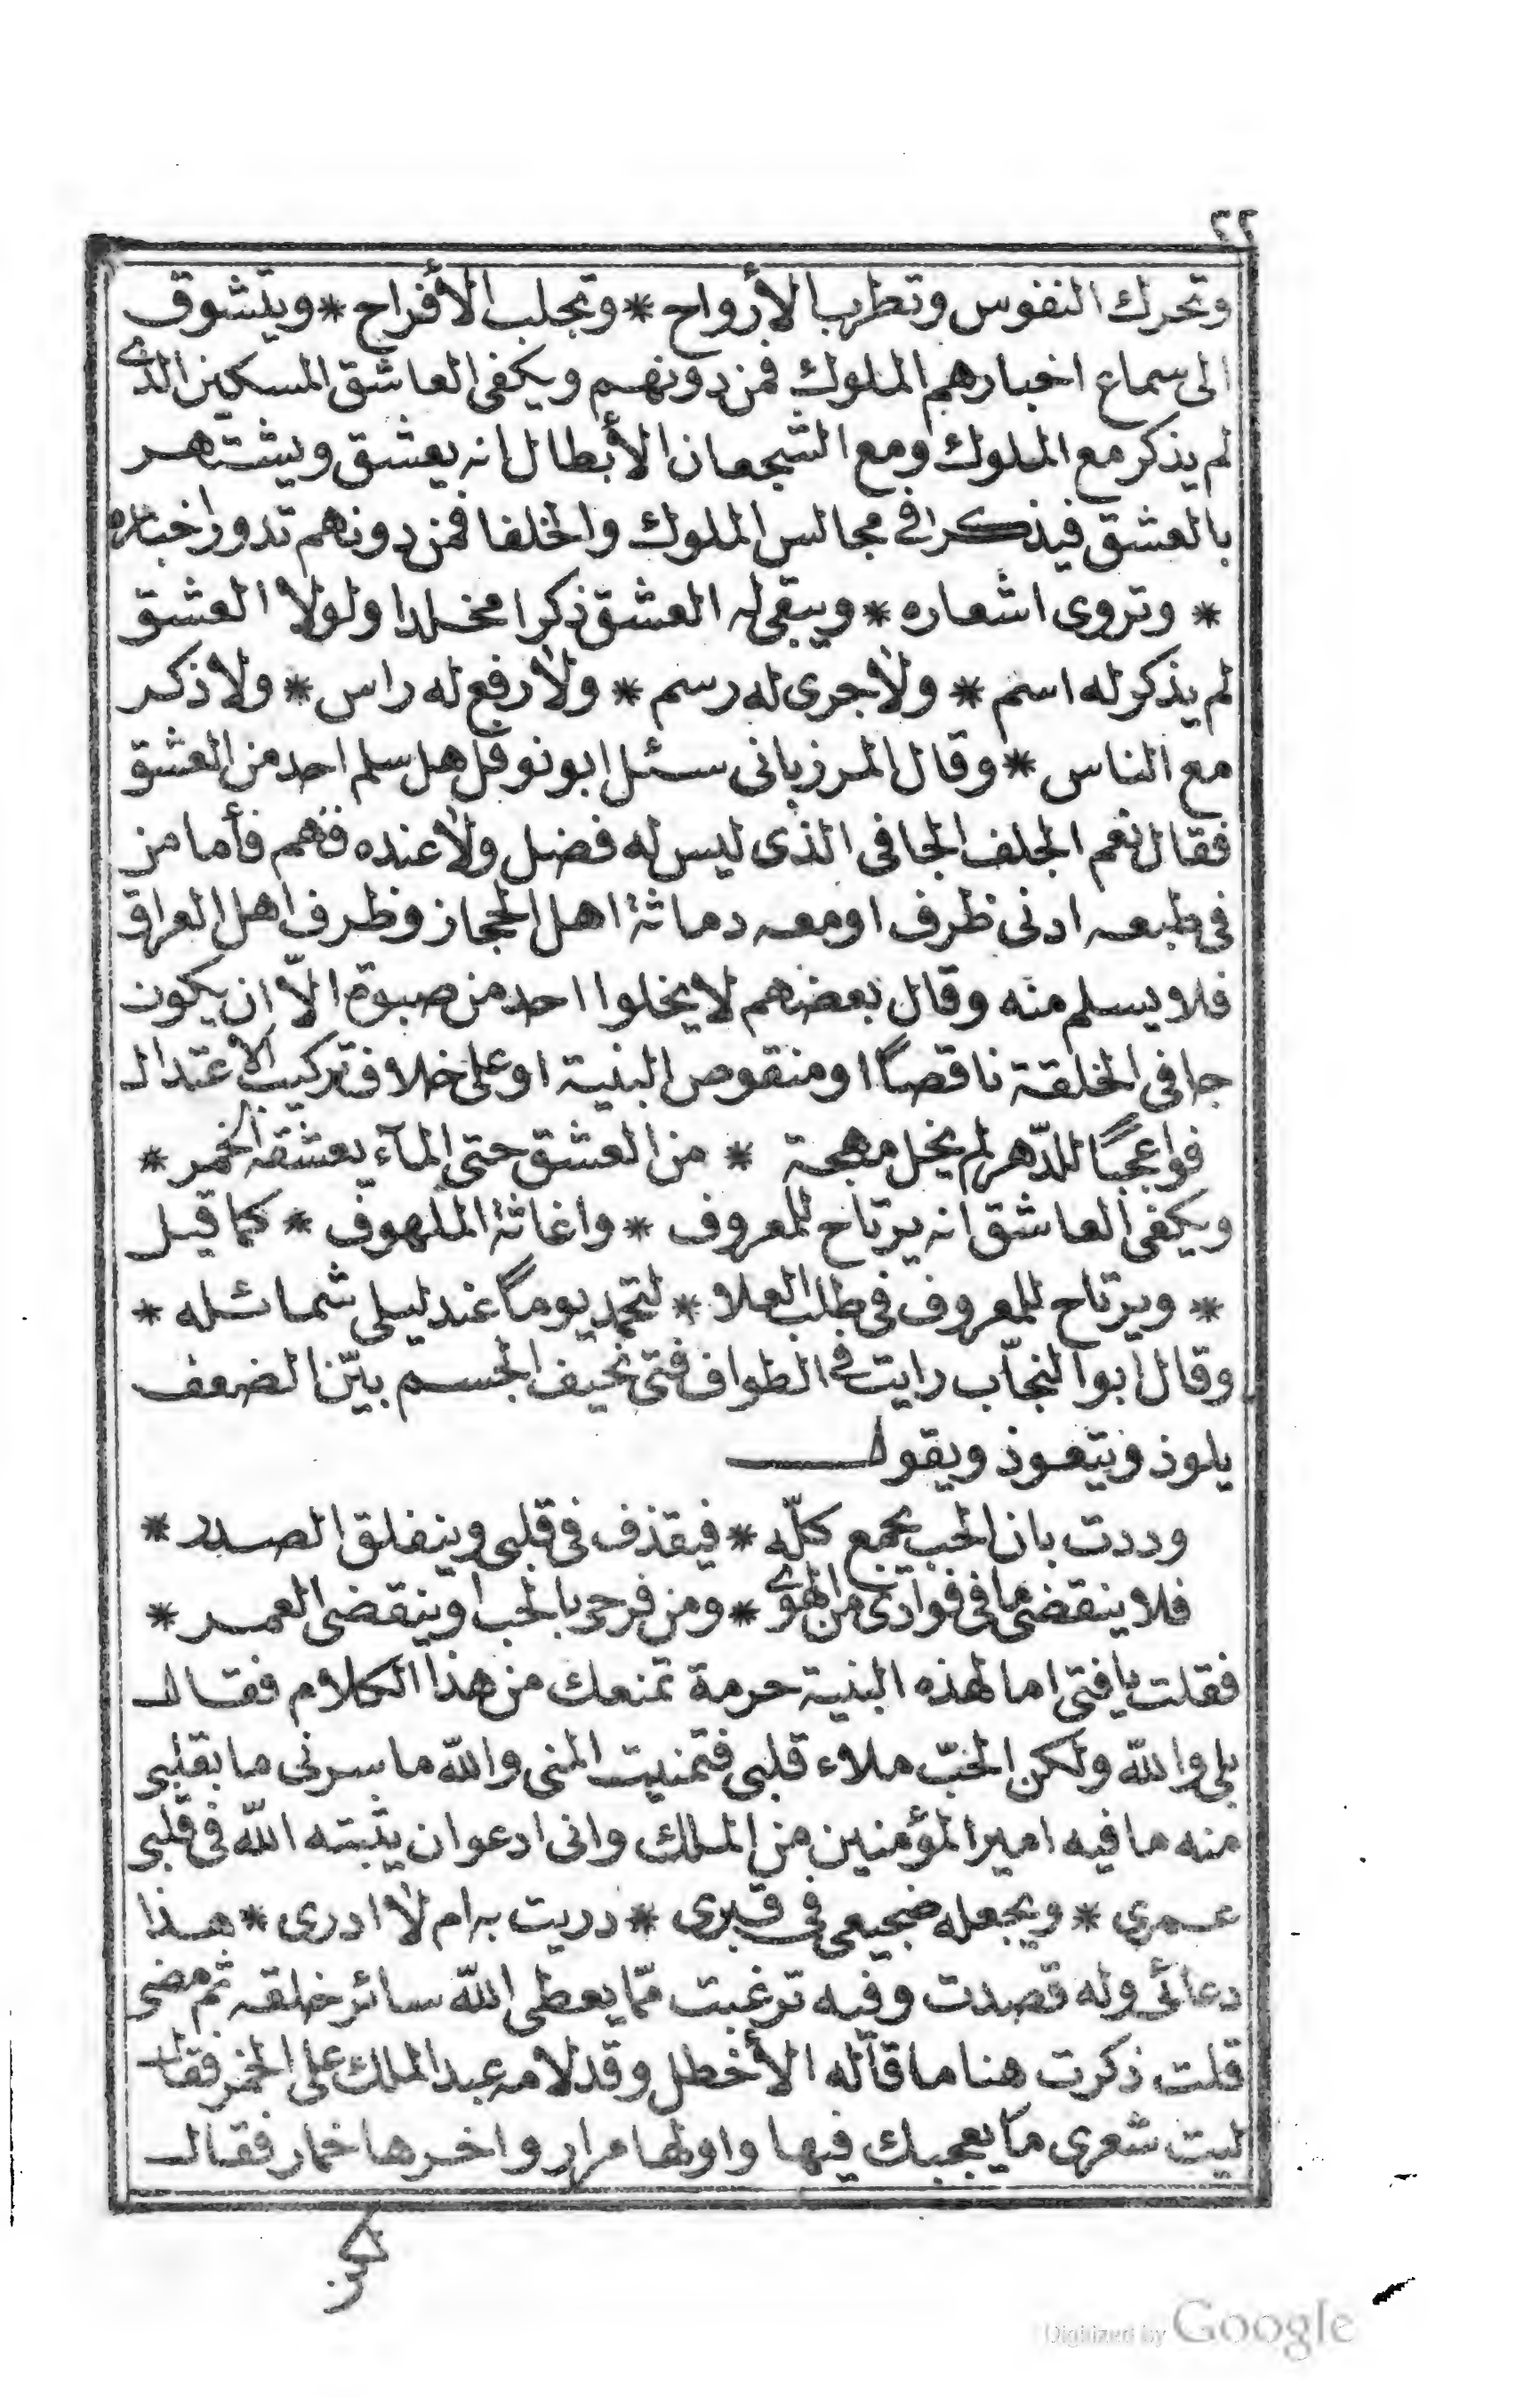 ٢٢
وتحرك النفوس وتطرب الأرواح * وتجلب الأفراح * ويتشوق
الى سماع اخبارهم الملوك فمن دونهم ويكفى العاشق المسكين الذى
لم يذكر مع الملوك ومع الشجعان الأبطال انه يعشق ويشتهر
بالعشق فيذكر فى مجالس الملوك والخلفا فمن دونهم تدور اخباره
* وتروى اشعاره * ويبقى له العشق ذكرا مخلدا ولولا العشق
لم يذكر له اسم * ولا جرى له رسم * ولا رفع له راس * ولا ذكر
مع الناس * وقال المرزبانى سئل ابو نوفل هل سلم احد من العشق
فقال نعم الجلف الجافى الذى ليس له فضل ولا عنده فهم فأما من
فى طبعه ادنى ظرف او معه دماثة اهل الحجاز وظرف اهل العراق
فلا يسلم منه وقال بعضهم لا يخلوا احد من صبوة الّا ان يكون
جافى الخلقة ناقصًا او منقوص البنية او على خلاف تركيب الاعتدال
فواعجبًا للدّهر لم يخل مهجة * من العشق حتى المآء يعشقه الخمر *
ويكفى العاشق انه يرتاح للمعروف * واغاثة الملهوف * كما قيل
* ويرتاح للمعروف فى طلب العلا * لتحمد يومًا عند ليلى شمائله *
وقال ابو النجّاب رايت فى الطواف فتى نحيف الجسم بيّن الضعف
يلوذ ويتعوذ ويقول
وددت بان الحب يجمع كلّه * فيقذف فى قلبى وينفلق الصدر *
فلا ينقضى ما فى فوادى من الهوى * ومن فرحى بالحب او ينقضى العمر *
فقلت يا فتى اما لهذه البنية حرمة تمنعك من هذا الكلام فقال
بلى والله ولكن الحبّ ملاء قلبى فتمنيت المنى والله ما سرنى ما بقلبى
منه ما فيه امير المؤمنين من الملك وانى ادعو ان يثبته الله فى قلبى
عمرى * ويجعله ضجيعى فى قبرى * دريت به ام لا ادرى * هذا
دعائى وله قصدت وفيه ترغبت ممّا يعطى الله سائر خلقه ثم مضى
قلت ذكرت هنا ما قاله الأخطل وقد لامه عبد الملك على الخمر فقال
ليت شعرى ما يعجبك فيها واولها مرار واخرها خمار فقال
Digitized by Google